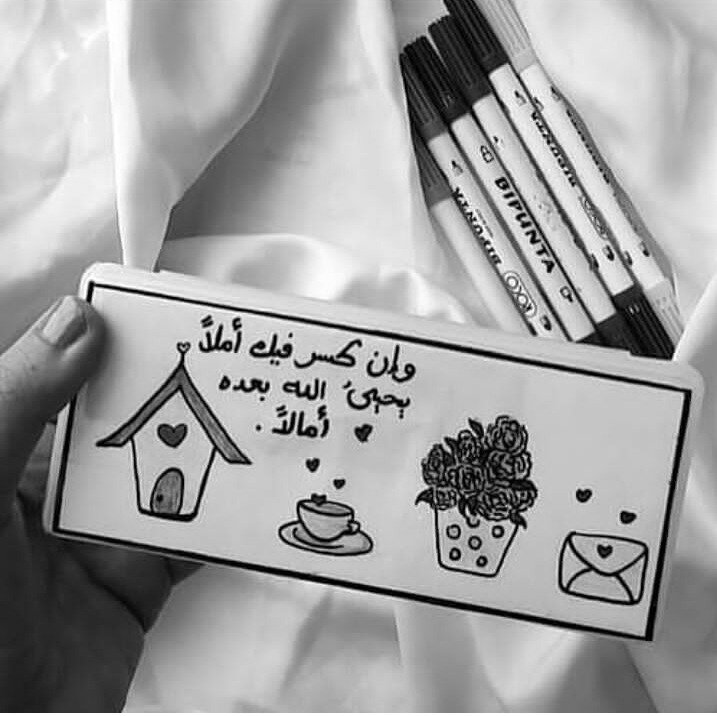 وإن كسر فيك أملاً
يحييُ الله بعده
أمالاً.
BIPUNTA
BIPUNTA
BIPUNTA